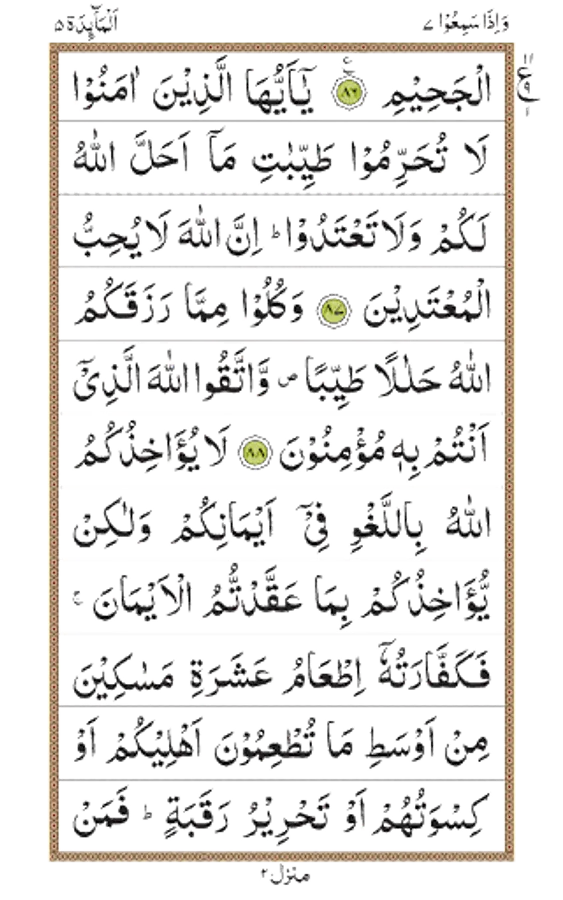 وَاِذَا سَمِعُوْا ٧
اَلْمَآئِدَة ٥
الْجَحِيْمِ ﴿٨٦﴾ يٰٓاَيُّهَا الَّذِيْنَ اٰمَنُوْا
ع ٩
لَا تُحَرِّمُوْا طَيِّبٰتِ مَآ اَحَلَّ اللّٰهُ
لَكُمْ وَلَا تَعْتَدُوْا ؕ اِنَّ اللّٰهَ لَا يُحِبُّ
الْمُعْتَدِيْنَ ﴿٨٧﴾ وَكُلُوْا مِمَّا رَزَقَكُمُ
اللّٰهُ حَلٰلًا طَيِّبًا ۪ وَّاتَّقُوا اللّٰهَ الَّذِيْۤ
اَنْتُمْ بِهٖ مُؤْمِنُوْنَ ﴿٨٨﴾ لَا يُؤَاخِذُكُمُ
اللّٰهُ بِاللَّغْوِ فِيْۤ اَيْمَانِكُمْ وَلٰكِنْ
يُّؤَاخِذُكُمْ بِمَا عَقَّدْتُّمُ الْاَيْمَانَ ۚ
فَكَفَّارَتُهٗۤ اِطْعَامُ عَشَرَةِ مَسٰكِيْنَ
مِنْ اَوْسَطِ مَا تُطْعِمُوْنَ اَهْلِيْكُمْ اَوْ
كِسْوَتُهُمْ اَوْ تَحْرِيْرُ رَقَبَةٍ ؕ فَمَنْ
منزل ٢